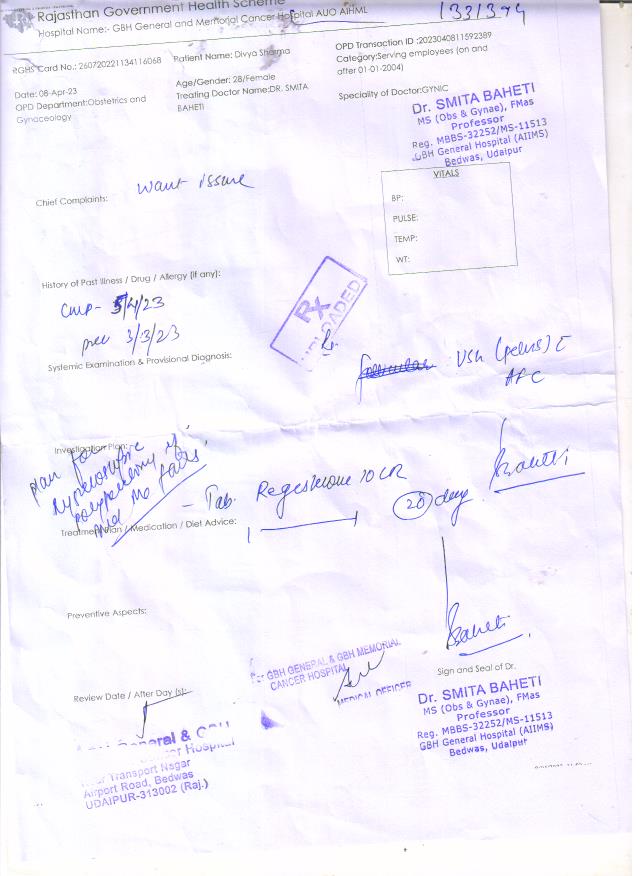 Rajasthan Government Health Scheme
Hospital Name:- GBH General and Memorial Cancer Hospital AUO AIHML
1331374
RGHS Card No.: 260720221134116068
Patient Name: Divya Sharma
OPD Transaction ID :2023040811592389
Category:Serving employees (on and
after 01-01-2004)
Date: 08-Apr-23
Age/Gender: 28/Female
OPD Department:Obstetrics and
Gynaceology
Treating Doctor Name:DR. SMITA
BAHETI
Speciality of Doctor:GYNIC
Dr. SMITA BAHETI
MS (Obs & Gynae), FMas
Professor
Reg. MBBS-32252/MS-11513
GBH General Hospital (AIIMS)
Bedwas, Udaipur
Chief Complaints:
Want issue
VITALS
BP:
PULSE:
TEMP:
WT:
History of Past Illness / Drug / Allergy (if any):
/4/23
3/3/23
Rx
UPLOADED
Rx
Systemic Examination & Provisional Diagnosis:
(pelvis)
AFC
Investigation Plan:
plan for
polypectomy if
- Tab. 10 CR
20 day
Baheti
Treatment Plan / Medication / Diet Advice:
Preventive Aspects:
Baheti
For GBH GENERAL & GBH MEMORIAL
CANCER HOSPITAL
MEDICAL OFFICER
Sign and Seal of Dr.
Review Date / After Day (s):
Dr. SMITA BAHETI
MS (Obs & Gynae), FMas
Professor
Reg. MBBS-32252/MS-11513
GBH General Hospital (AIIMS)
Bedwas, Udaipur
General & GBH
Hospital
Transport Nagar
Airport Road, Bedwas
UDAIPUR-313002 (Raj.)